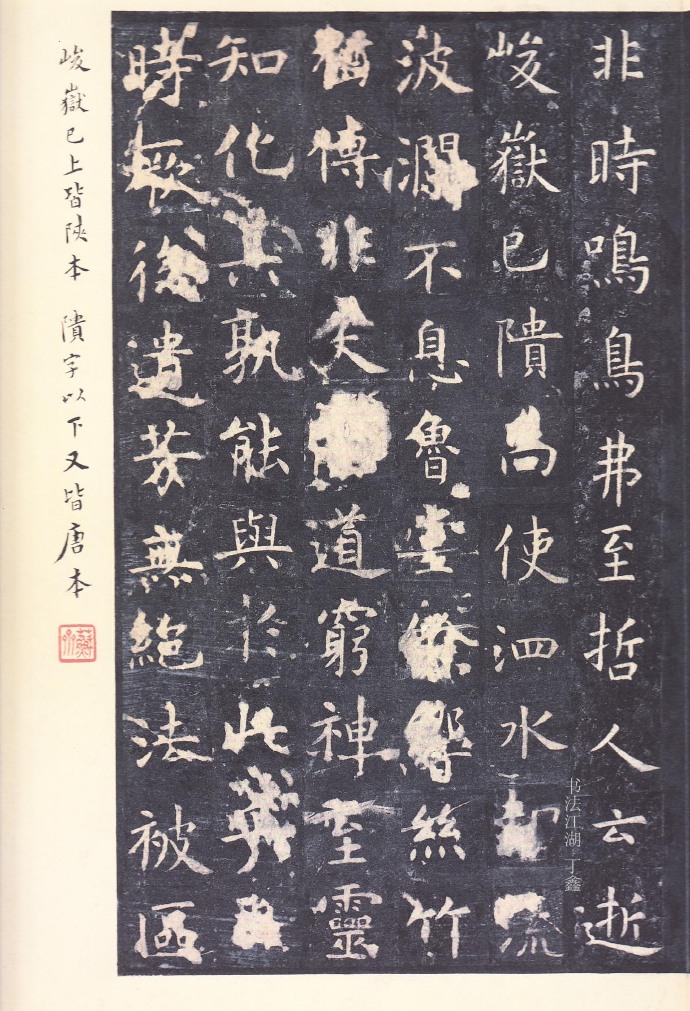 非時鳴鳥弗至哲人云逝
峻嶽已隤尚使泗水却流
波瀾不息魯堂餘響絲竹
猶傳非夫道窮神至靈
知化其孰能與於此乎自
時厥後遺芳無絕法被區
峻嶽已上皆陝本 隤字以下又皆唐本
书法江湖 丁鑫